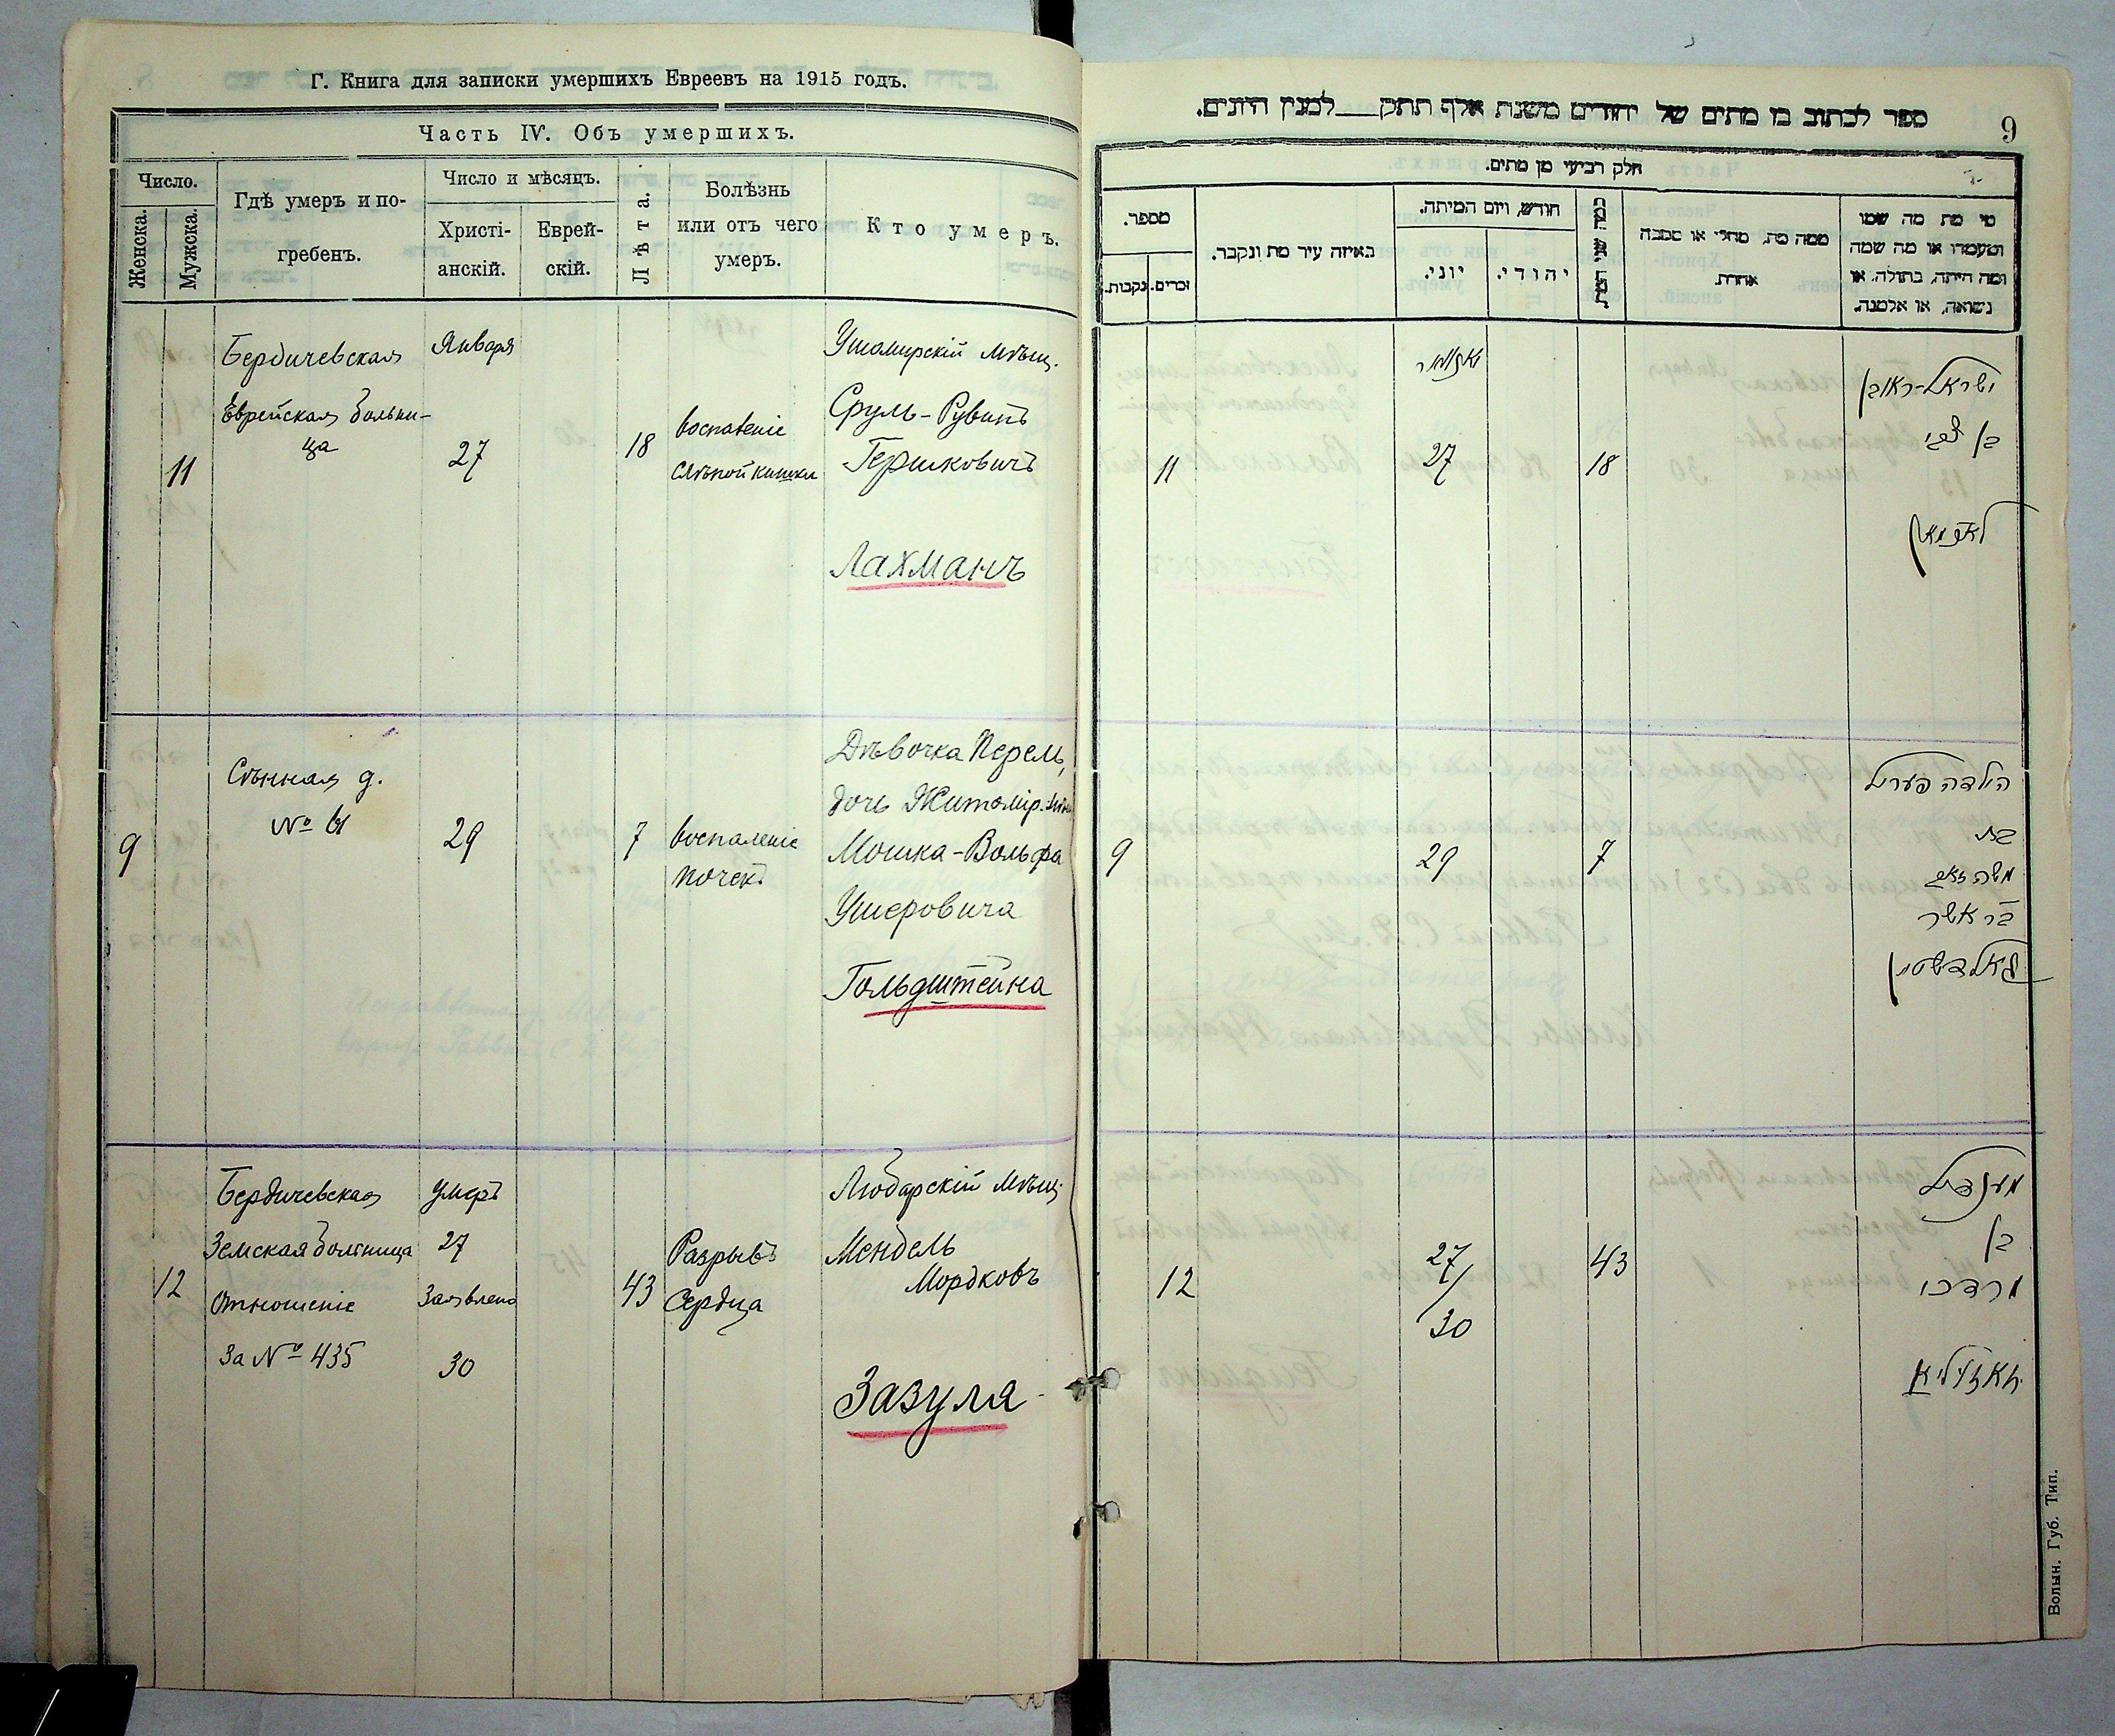 Г. Книга для записки умершихъ Евреевъ на 1915 годъ.
Часть IV. Объ умершихъ.
Число.
Женска.
Мужска.
Гдѣ умеръ и по-
гребенъ.
Число и мѣсяцъ.
Христі-
анскій.
Еврей-
скій.
Лѣта.
Болѣзнь
или отъ чего
умеръ.
Кто умеръ.
11
Бердичевская
Еврейская больни-
ца
Января
27
18
воспаленіе
слѣпой кишки
Ушомирскій мѣщ.
Сруль-Рувинъ
Гершковичъ
Лахманъ
9
Сѣнная д.
№
29
7
воспаленіе
почекъ
Дѣвочка Перель,
дочь Житомір. мѣщ
Мошка-Вольфа
Ушеровича
Гольдштейна
12
Бердичевская
Земская больница
Отношеніе
за № 435
умеръ
27
Заявлено
30
43
Разрывъ
Сердца
Любарскій мѣщ.
Мендель
Мордковъ
Зазуля
ספר לכתוב בו מתים של יהודים משנת אלף תתק___למנין היונים.
9
חלק רביעי מן מתים.
מספר.
נקבות.
זכרים.
באיזה עיר מת ונקבר.
חודש, ויום המיתה.
יוני.
יהודי.
כמה שני המת
ממה מת, מחלי או מסבה
אחרת.
מי מת מה שמו
ומעמדו או מה שמה
ומה היתה, בתולה, או
נשואה, או אלמנה.
11
יאנואר
27
18
ישראל-ראובן
בן צבי
לאכמאן
9
29
7
הילדה פעריל
בת
משה זאב
בר אשר
גאלדשטיין
12
27/
30
43
מענדיל
בן
מרדכי
זאזוליא
Волын. Губ. Тип.